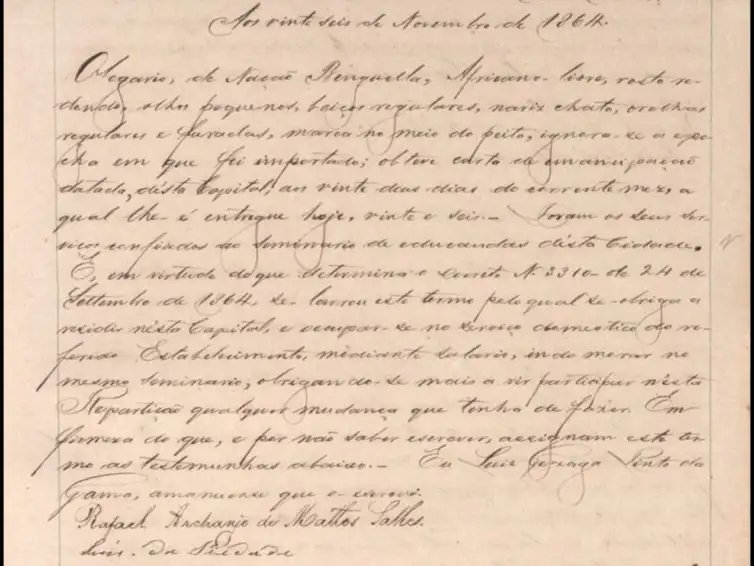 Aos vinte seis de Novembro de 1864.
Olegario, de Nação Benguella, Africano livre, rosto re-
dondo, olhos pequenos, beiços regulares, nariz chato, orelhas
regulares e furadas, marca no meio do peito, ignora-se a epo-
cha em que foi importado; obteve carta de emancipação
datada, désta Capital, aos vinte dous dias do corrente mez, a
qual lhe é entregue hoje, vinte e seis.— Foram os seus ser-
viços confiados ao Seminario de educandas désta Cidade.
E, em virtude do que determina o Decreto N. 3310 de 24 de
Settembro de 1864, se lavrou este termo pelo qual se obriga a
residir nésta Capital, e occupar-se no serviço domestico do re-
ferido Estabelecimento, mediante salario, indo morar no
mesmo Seminario, obrigando-se mais a vir participar nésta
Repartição qualquer mudança que tenha de fazer. Em
firmeza do que, e por não saber escrever, assignam este ter-
mo as testemunhas abaixo.— Eu Luiz Gonzaga Pinto da
Gama, amanuense que o escrevi.
Rafael Archanjo de Mattos Salles.
Luis da Piedade